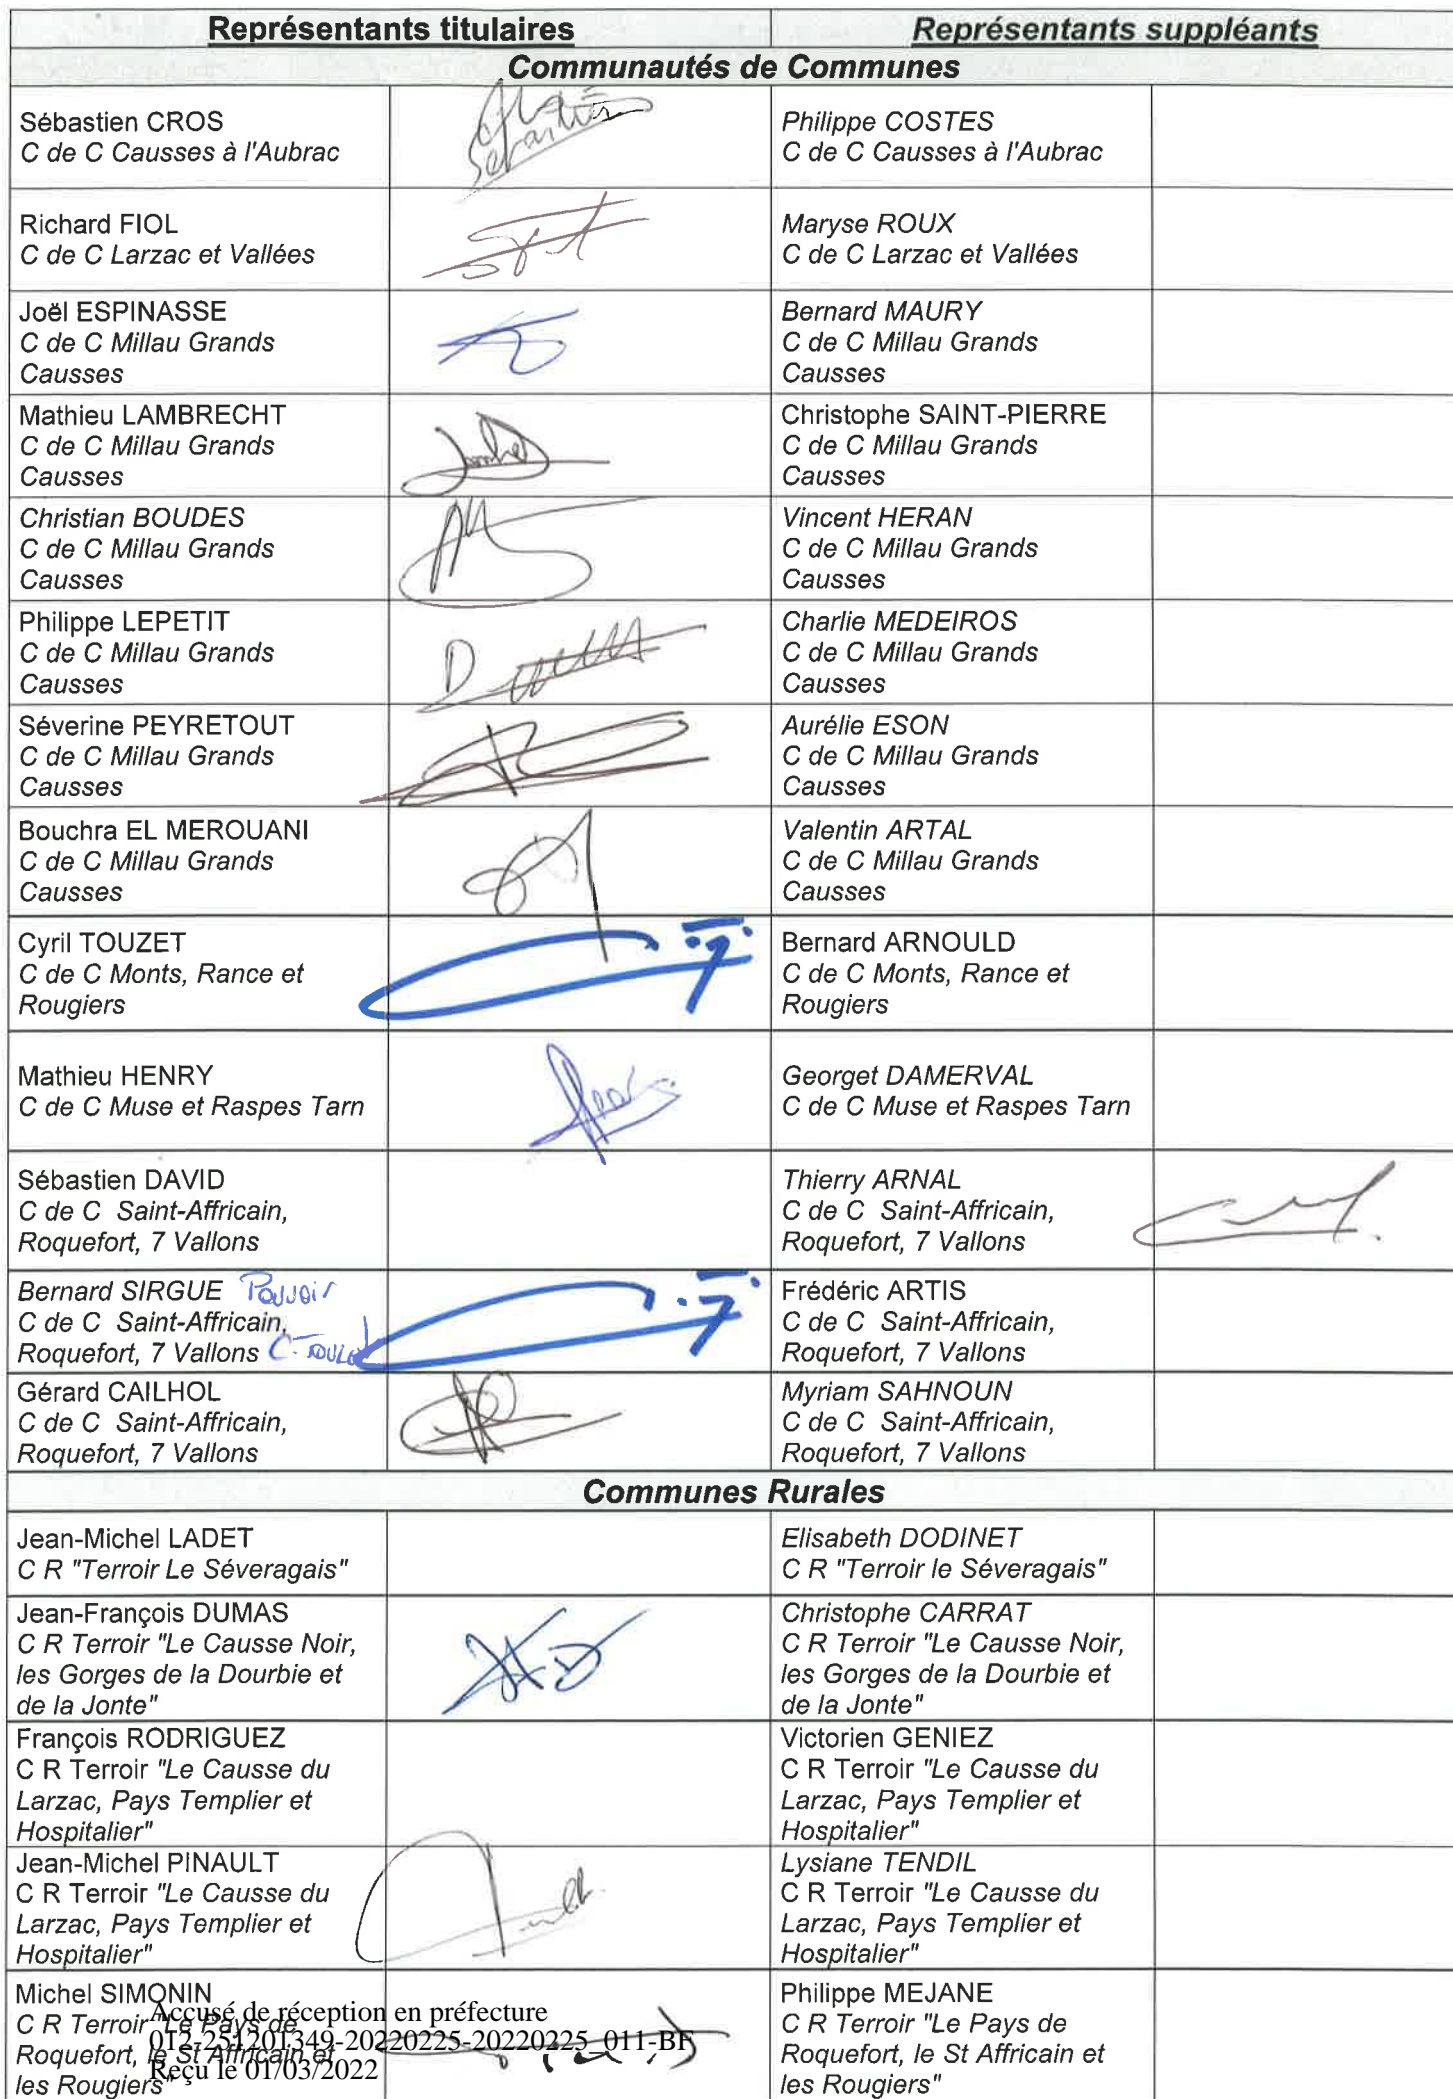 Représentants titulaires Représentants suppléants
Communautés de Communes
Sébastien CROS
C de C Causses à l'Aubrac
Philippe COSTES
C de C Causses à l'Aubrac
Richard FIOL
C de C Larzac et Vallées
Maryse ROUX
C de C Larzac et Vallées
Joël ESPINASSE
C de C Millau Grands
Causses
Bernard MAURY
C de C Millau Grands
Causses
Mathieu LAMBRECHT
C de C Millau Grands
Causses
Christophe SAINT-PIERRE
C de C Millau Grands
Causses
Christian BOUDES
C de C Millau Grands
Causses
Vincent HERAN
C de C Millau Grands
Causses
Philippe LEPETIT
C de C Millau Grands
Causses
Charlie MEDEIROS
C de C Millau Grands
Causses
Séverine PEYRETOUT
C de C Millau Grands
Causses
Aurélie ESON
C de C Millau Grands
Causses
Bouchra EL MEROUANI
C de C Millau Grands
Causses
Valentin ARTAL
C de C Millau Grands
Causses
Cyril TOUZET
C de C Monts, Rance et
Rougiers
Bernard ARNOULD
C de C Monts, Rance et
Rougiers
Mathieu HENRY
C de C Muse et Raspes Tarn
Georget DAMERVAL
C de C Muse et Raspes Tarn
Sébastien DAVID
C de C Saint-Affricain,
Roquefort, 7 Vallons
Thierry ARNAL
C de C Saint-Affricain,
Roquefort, 7 Vallons
Bernard SIRGUE Pouvoir
C de C Saint-Affricain,
Roquefort, 7 Vallons
Frédéric ARTIS
C de C Saint-Affricain,
Roquefort, 7 Vallons
Gérard CAILHOL
C de C Saint-Affricain,
Roquefort, 7 Vallons
Myriam SAHNOUN
C de C Saint-Affricain,
Roquefort, 7 Vallons
Communes Rurales
Jean-Michel LADET
C R "Terroir Le Séveragais"
Elisabeth DODINET
C R "Terroir le Séveragais"
Jean-François DUMAS
C R Terroir "Le Causse Noir,
les Gorges de la Dourbie et
de la Jonte"
Christophe CARRAT
C R Terroir "Le Causse Noir,
les Gorges de la Dourbie et
de la Jonte"
François RODRIGUEZ
C R Terroir "Le Causse du
Larzac, Pays Templier et
Hospitalier"
Victorien GENIEZ
C R Terroir "Le Causse du
Larzac, Pays Templier et
Hospitalier"
Jean-Michel PINAULT
C R Terroir "Le Causse du
Larzac, Pays Templier et
Hospitalier"
Lysiane TENDIL
C R Terroir "Le Causse du
Larzac, Pays Templier et
Hospitalier"
Michel SIMONIN
C R Terroir "Le Pays de
Roquefort, le St Affricain et
les Rougiers"
Accusé de réception en préfecture
012-251201349-20220225-20220225_011-BF
Reçu le 01/03/2022
Philippe MEJANE
C R Terroir "Le Pays de
Roquefort, le St Affricain et
les Rougiers"